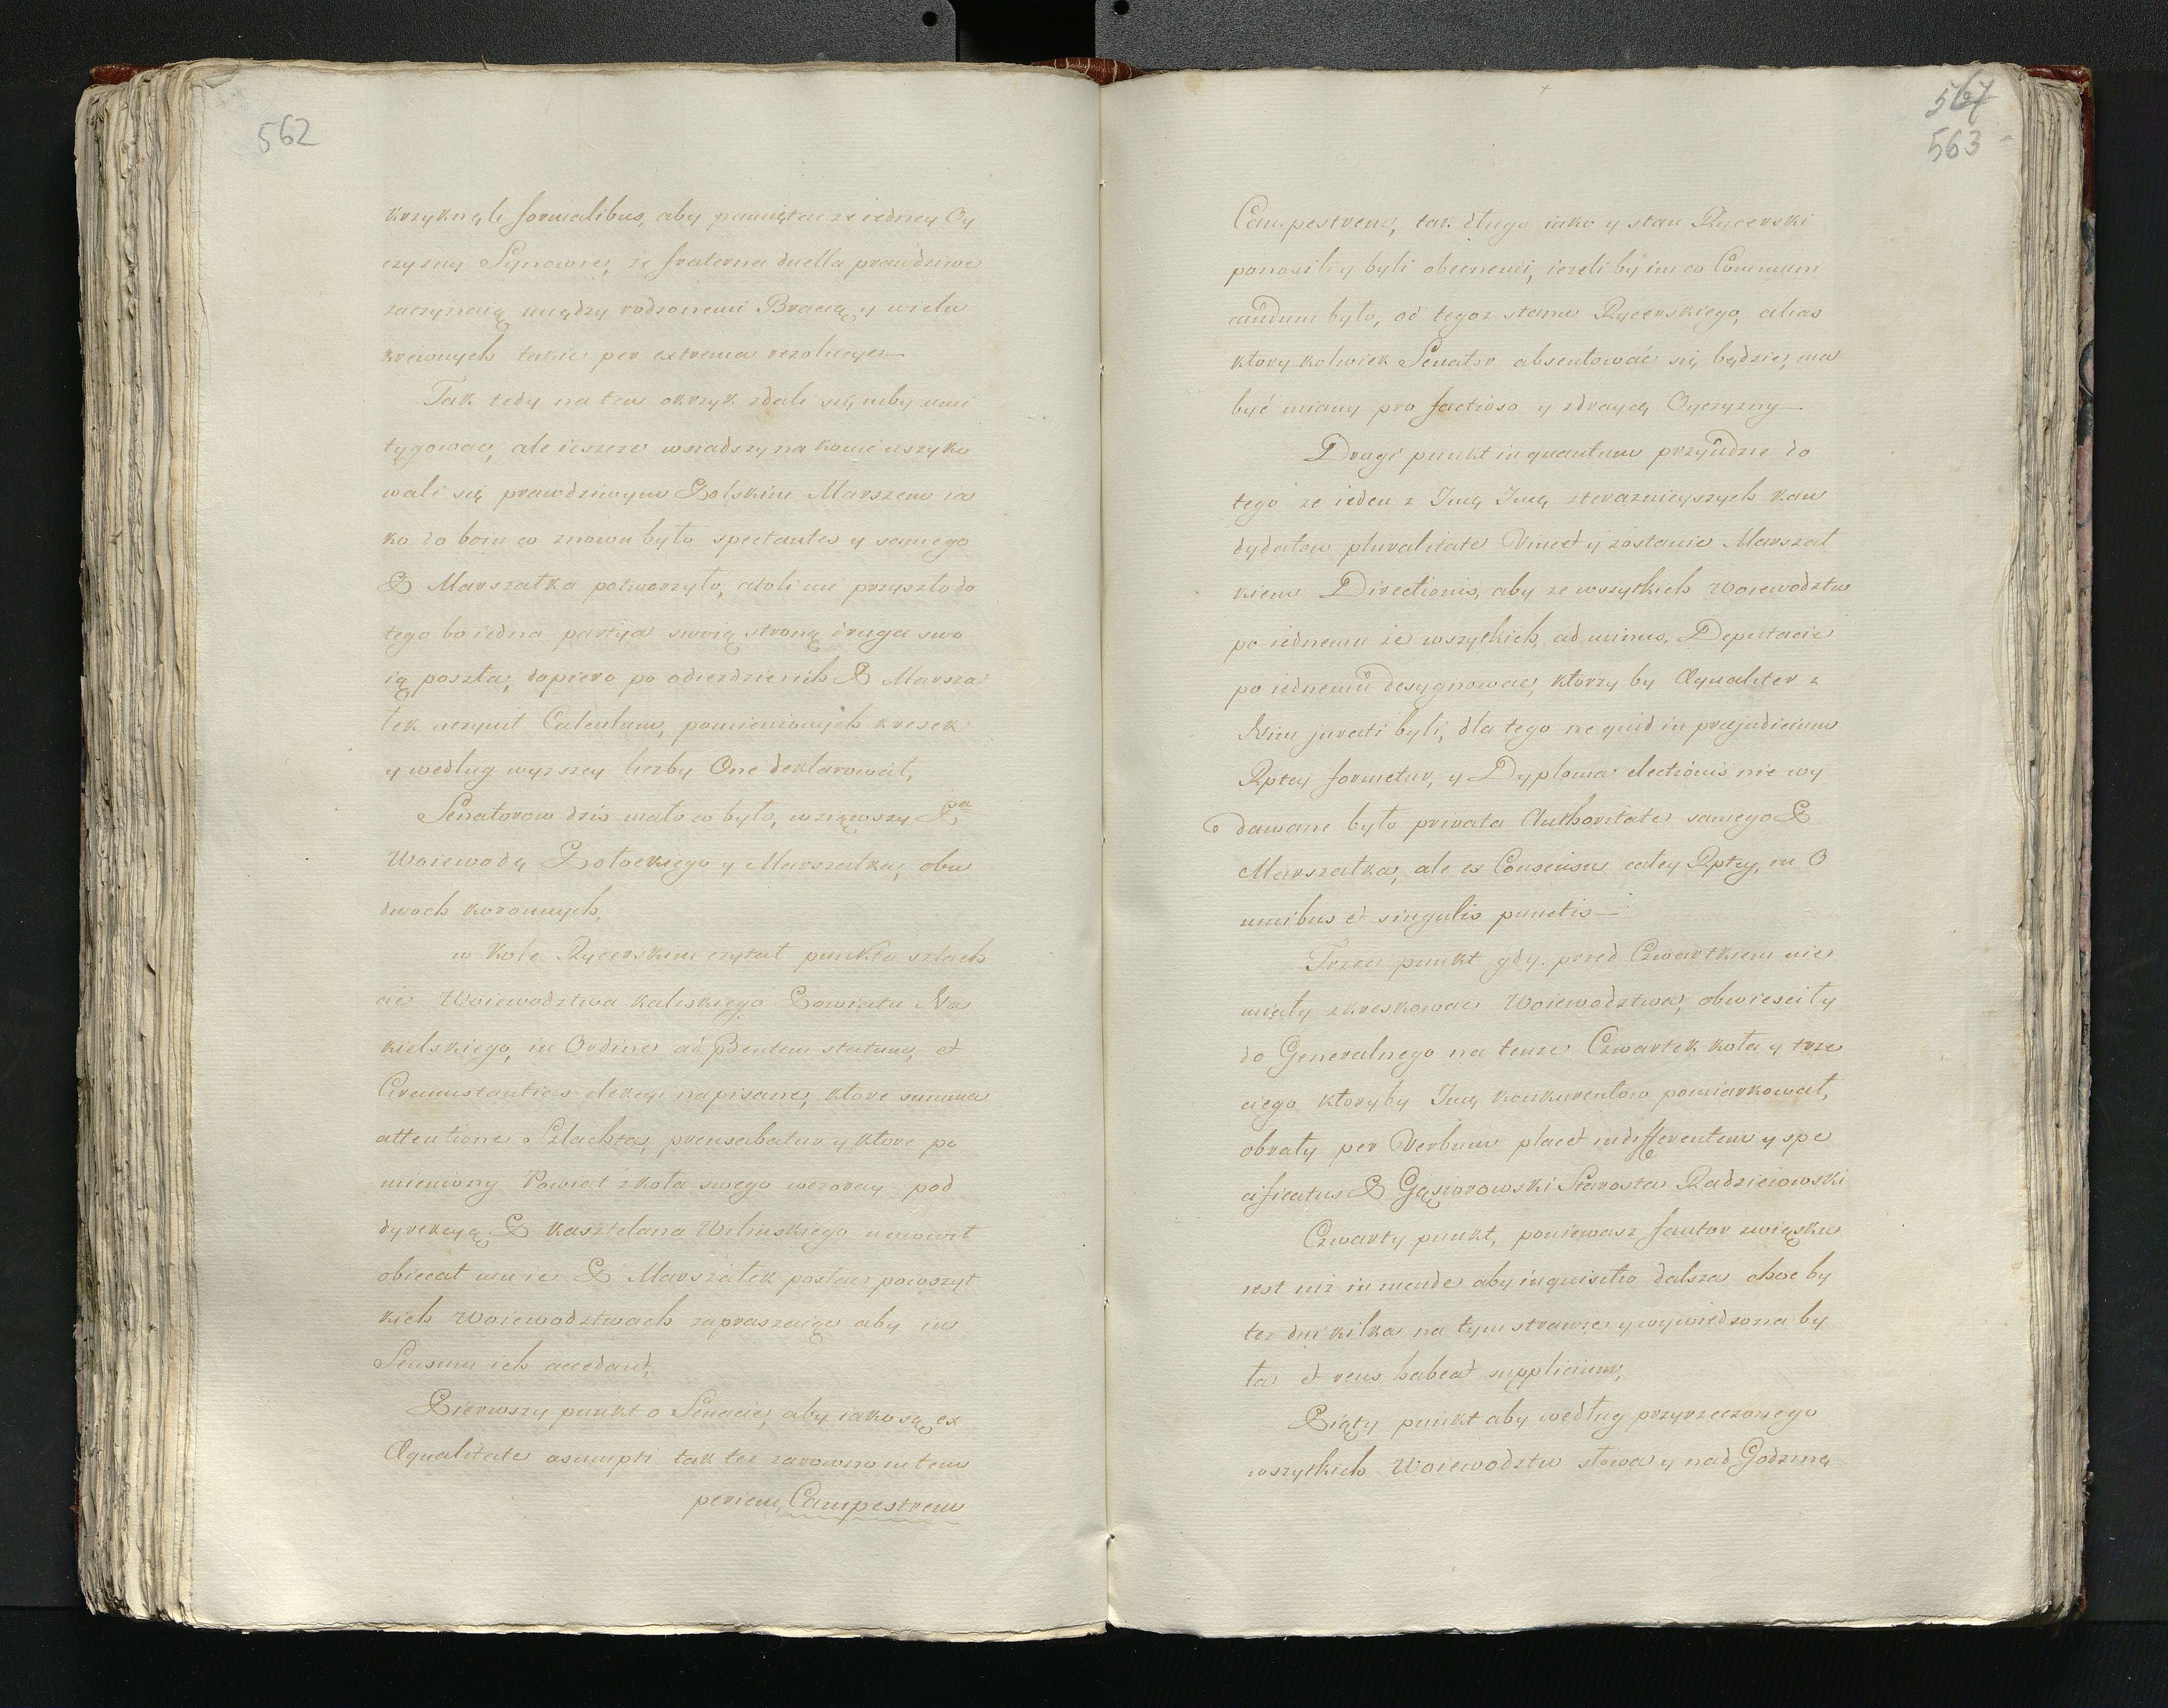 562
krzyknęli formalibus, aby pamiętać ze iedney Oy
czyzny Synowie, ze fraterna duella prawdziwe
zaczynaią między rodzonemi Bracią y wielu
krewnych takie per extrema rezolucye—
Tak tedy na ten okrzyk zdali się niby miti
tygować, ale ieszcze wsiadszy na konie uszyko
wali się prawdziwym Polskim Marszem ia
ko do boiu co znowu było spectantes y samego
P Marszałka potworzyło, atoli nie przyszło do
tego bo iedna partya swoią stroną druga swo
ią poszła, dopiero po odiezdzie ich P Marsza
łek uczynił Calculum, pomienionych kresek
y według wyzszey liczby One deklarował,
Senatorow dziś mało co było, wziąwszy Pa
Woiewodę Potockiego y Marszałka, obu
dwoch koronnych,
w Kole Rycerskim czytał punkta szlach
cic Woiewodztwa kaliskiego Powiatu Na
kielskiego, in Ordine ad pdentem statum, et
Circumstantias elekcyi napisane, ktore summa
attentione Szlachta, prensabatur y ktore po
mieniony Powiat z koła swego wczoray pod
dyrekcyą P kasztelana Wilinskiego umowił
obiecał mu ie P Marszałek posłac po wszyt
kich Woiewodztwach zapraszaiąc aby in
Sensum ich accedant,
Pierwszy punkt o Senacie, aby iako są ex
Æqualitate asumpti tak tez zarowno intem
periem, Campestrem
567
563
Campestrem, tak długo iako y stan Rycerski
ponosili y byli obecnemi, iezeli by im co Communi
candum było, od tegoz stanu Rycerskiego, alias
ktory kolwiek Senator absentować się będzie, ma
być miany pro factioso y zdraycą Oyczyzny—
Drugi punkt in quantum przyidzie do
tego ze ieden z Imę Imę z terazniejszych kan
dydatow pluralitate Vincet y zostanie Marszał
kiem Directionis, aby ze wszytkich Woiewodztw
po iednemu ze wszytkich, ad minus, Deputacie
po iednemu desygnować, ktorzy by Æqualiter z
Nim jurati byli, dla tego ne quid in præjudicium
Rptey formetur, y Dyploma electionis nie wy
dawane było privata Authoritate samego P
Marszałka, ale ex Consensu całey Rptey, in O
mnibus et singulis punctis—
Trzeci punkt gdy przed Czwartkiem nie
miały zkreskować Woiewodztwa, obwieściły
do Generalnego na tenze Czwartek koła y trze
ciego ktoryby Imę konkurentow pomiarkował,
obrały per Verbum placet indifferentem y spe
cificatus P Gąsiorowski Starosta Radzieiowski
Czwarty punkt, poniewasz fautor związku
iest niż in mende aby inquisitio dalsza choc by
tez dni kilka na tym strawic y wywiedziona by
ła et reus habeat supplicium,
Piąty punkt aby według przyrzeczonego
wszytkich Woiewodztw słowa y nad Godzinę